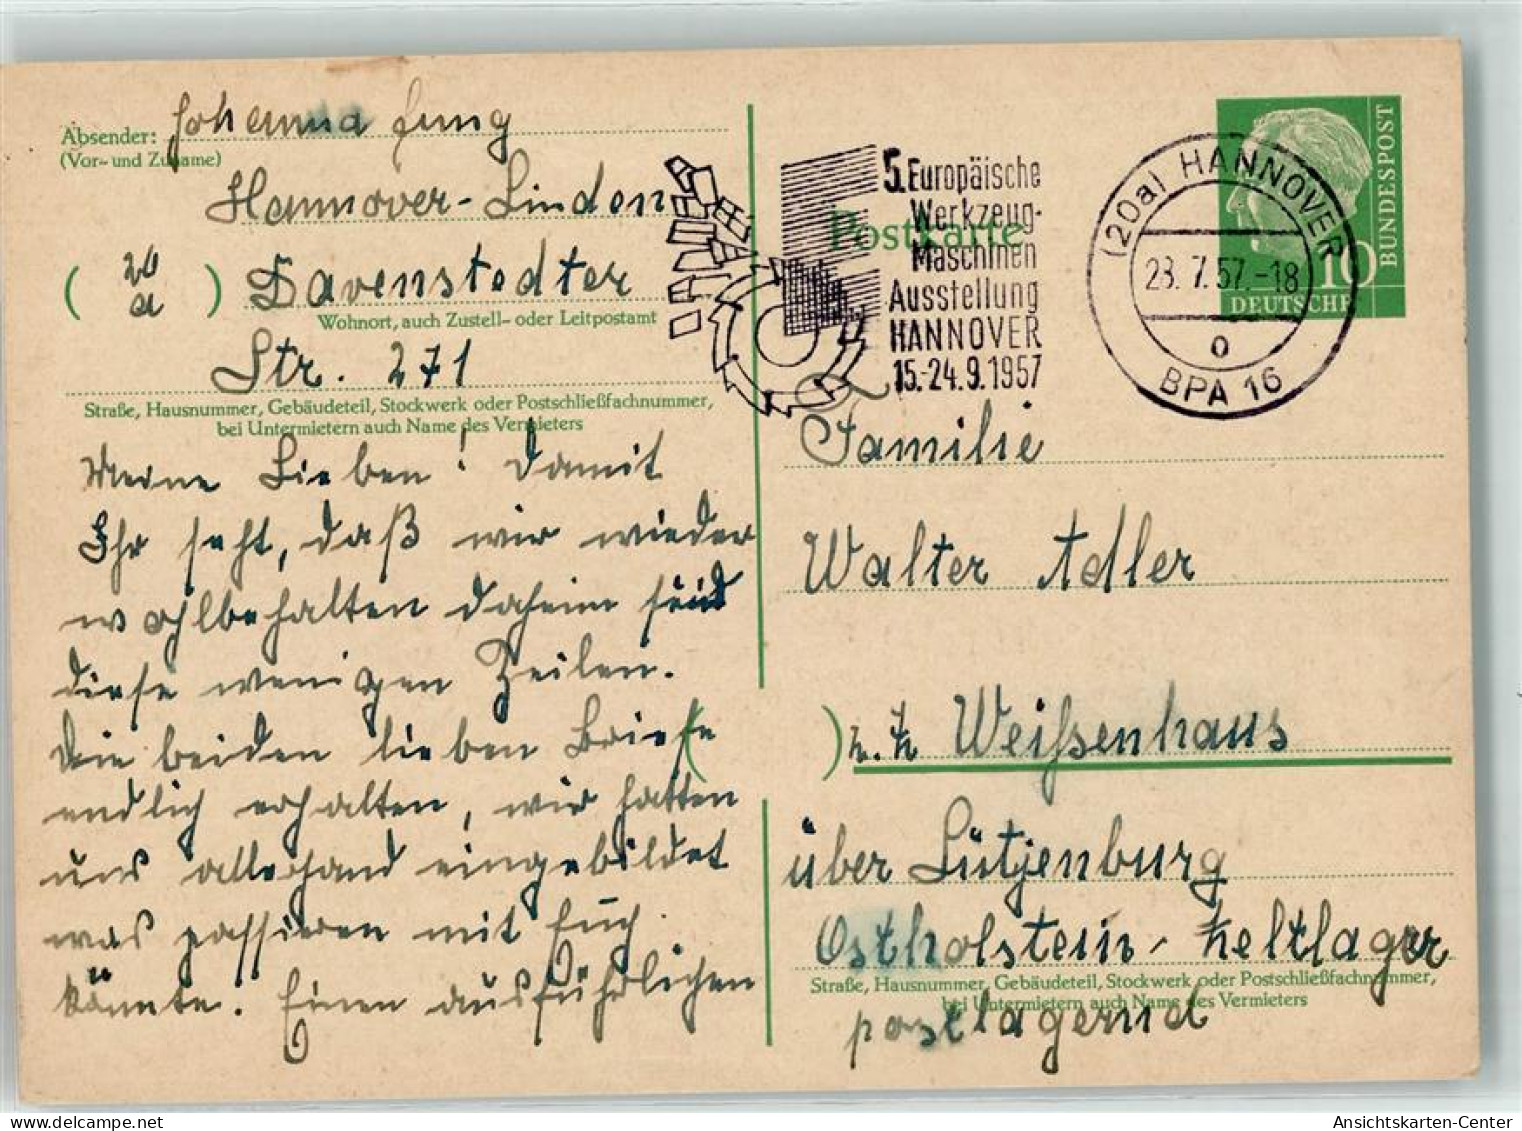 Absender: Johanna Jung
(Vor- und Zuname)
Hannover-Linden
(20a) Davenstedter
Wohnort, auch Zustell- oder Leitpostamt
Str. 271
Straße, Hausnummer, Gebäudeteil, Stockwerk oder Postschließfachnummer,
bei Untermietern auch Name des Vermieters
Meine Lieben! Damit
Ihr seht, daß wir wieder
wohlbehalten daheim sind
diese wenigen Zeilen.
Die beiden lieben Briefe
endlich erhalten, wir hatten
uns allerhand eingebildet
was passieren mit Euch
könnte. Einen ausführlichen
Postkarte
5. Europäische
Werkzeug-
Maschinen
Ausstellung
HANNOVER
15.-24.9.1957
(20a) HANNOVER
23.7.57.-18
o
BPA 16
BUNDESPOST
10
DEUTSCHE
Familie
Walter Adler
( ) z. Z. Weißenhaus
über Lütjenburg
Ostholstein, Zeltlager
Straße, Hausnummer, Gebäudeteil, Stockwerk oder Postschließfachnummer,
bei Untermietern auch Name des Vermieters
postlagernd
Ansichtskarten-Center